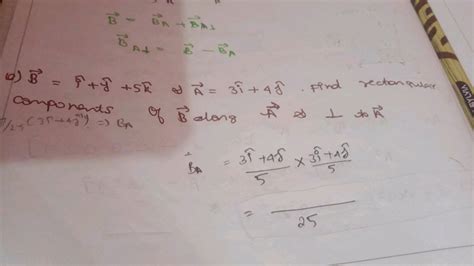 B⃗ = B⃗_A + B⃗_A⊥
B⃗_A⊥ = B⃗ - B⃗_A
B⃗ = î + ĵ + 5k̂ & A⃗ = 3î + 4ĵ . Find rectangular
components of B⃗ along A⃗ & ⊥ to A⃗
7/25 (3î+4ĵ) => B_A
B_A = 3î+4ĵ/5 × 3î+4ĵ/5
= /25